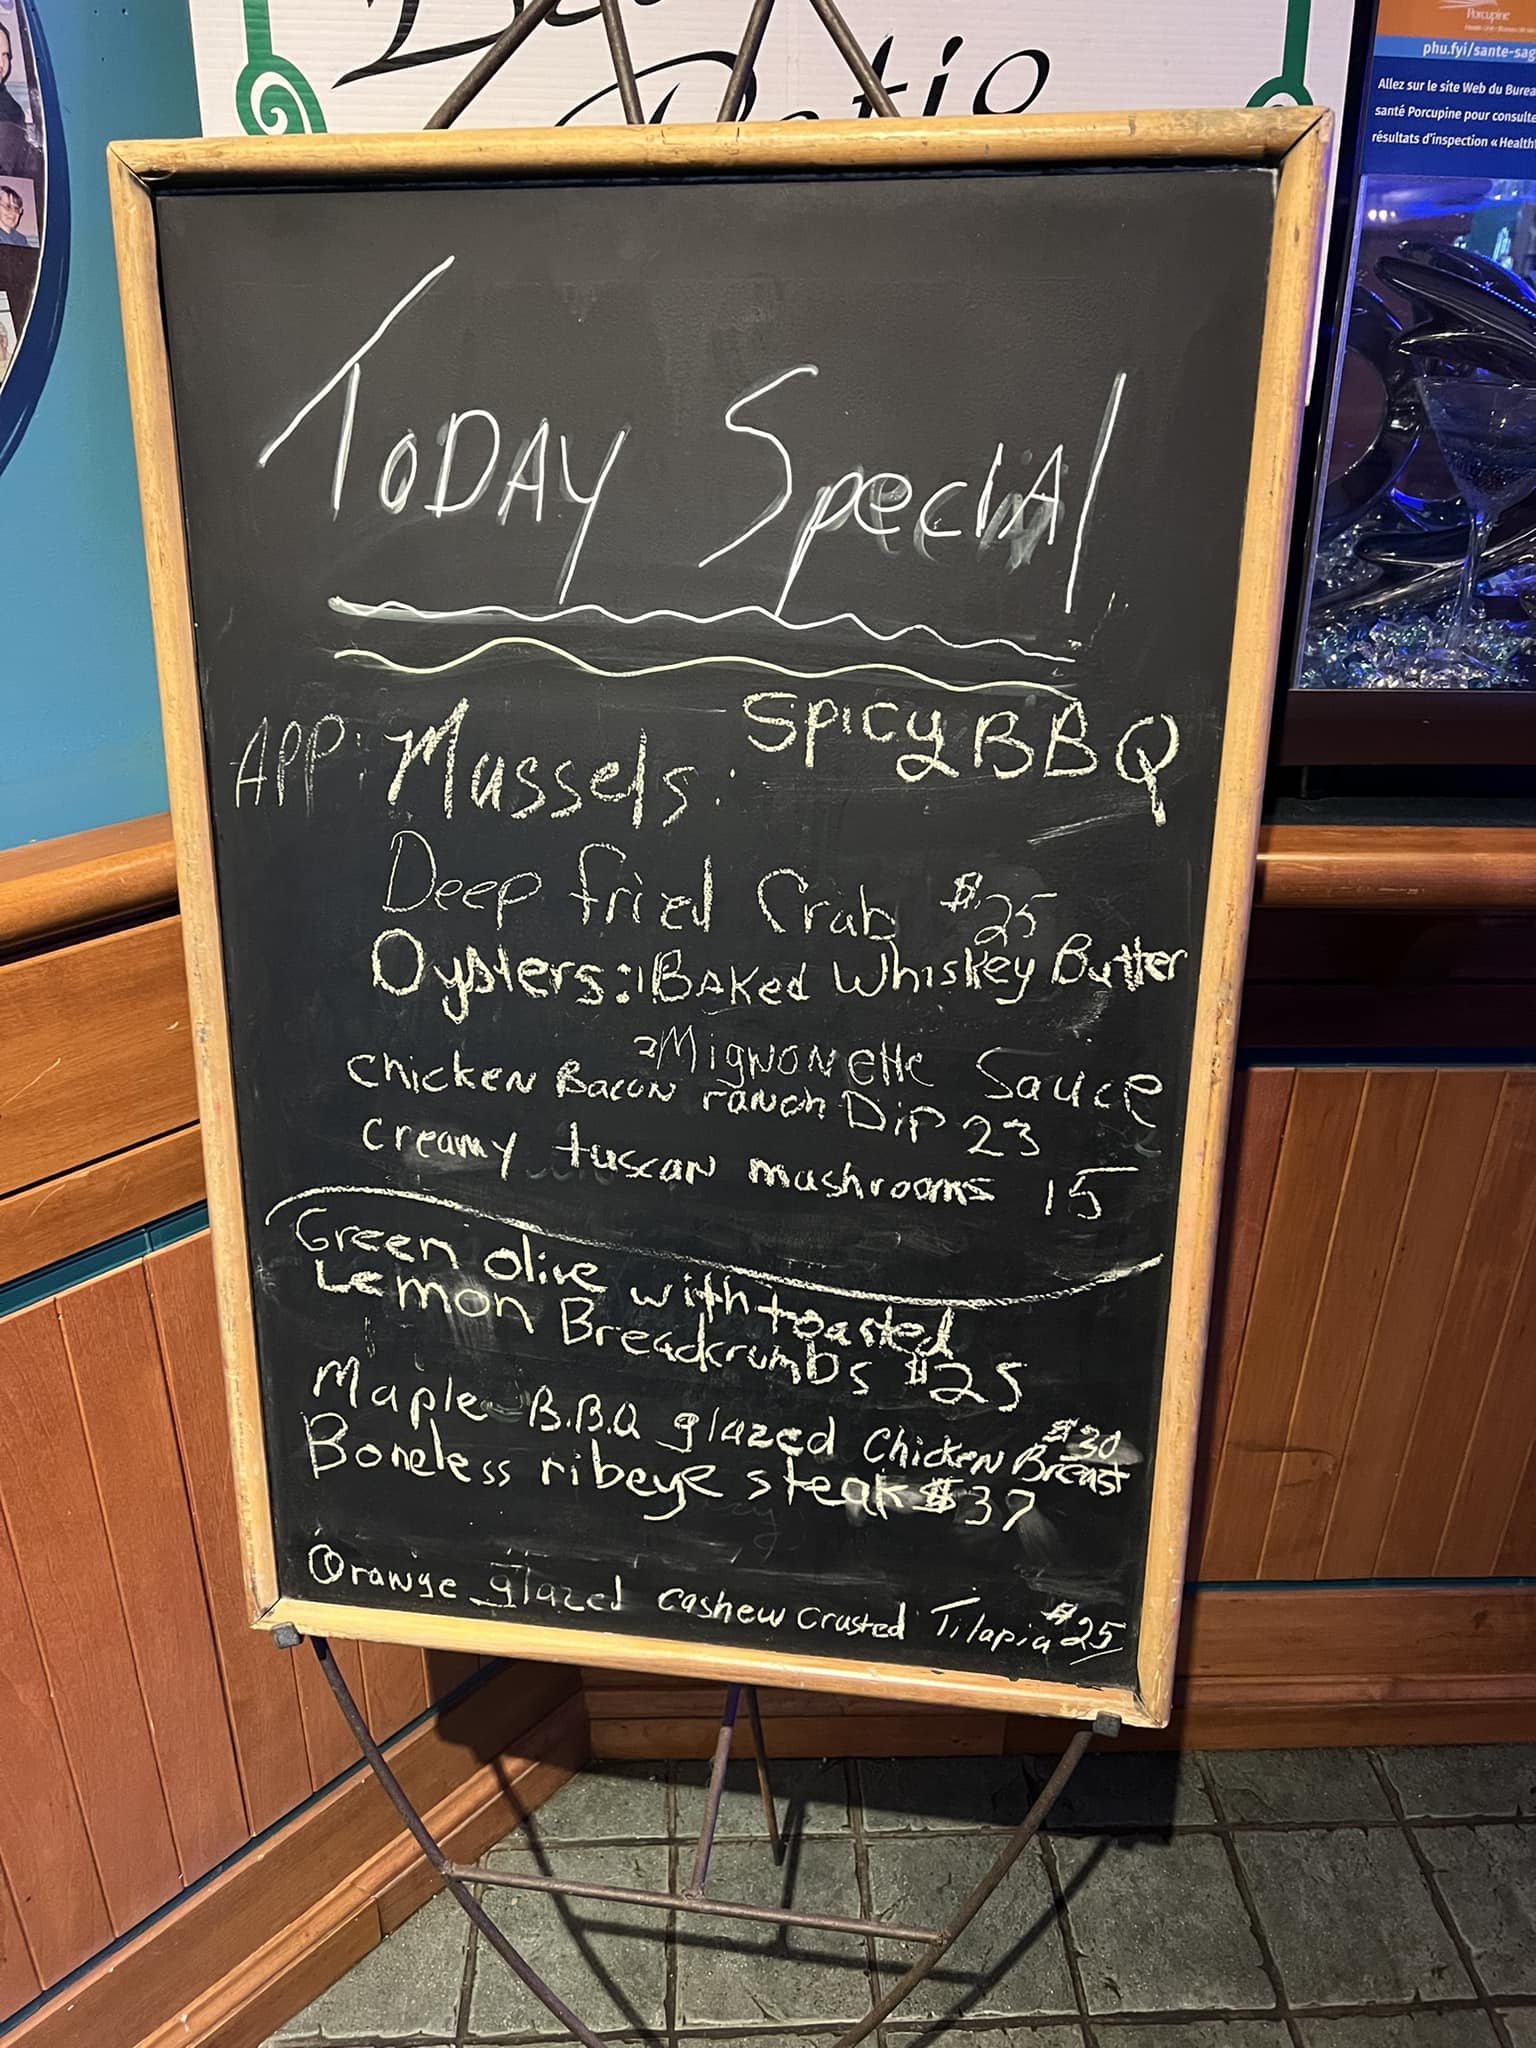 Patio
Porcupine
phu.fyi/sante-sag
Allez sur le site Web du Burea
santé Porcupine pour consulte
résultats d'inspection «Health
TODAY Special
APP: Mussels: Spicy BBQ
Deep fried Crab $25
Oysters: 1 BAKed Whiskey Butter
2 Mignonette Sauce
chicken Bacon ranch Dip 23
creamy tuscan mushrooms 15
Green olive with toasted
Lemon Breadcrumbs $25
Maple B.B.Q glazed Chicken Breast $30
Boneless ribeye steak $37
Orange glazed cashew crusted Tilapia $25